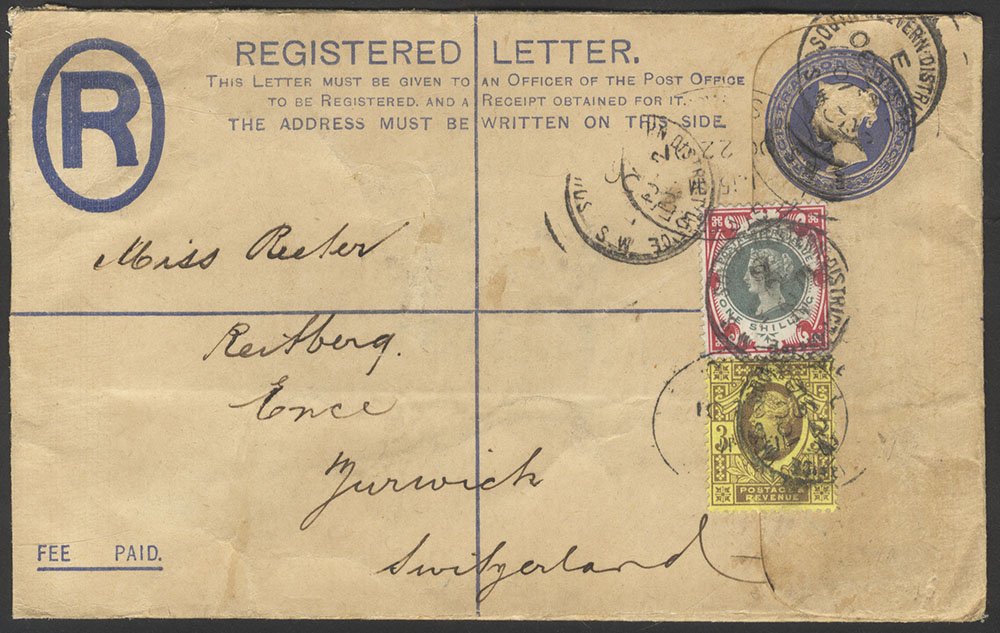 REGISTERED LETTER.
THIS LETTER MUST BE GIVEN TO AN OFFICER OF THE POST OFFICE
TO BE REGISTERED, AND A RECEIPT OBTAINED FOR IT.
THE ADDRESS MUST BE WRITTEN ON THIS SIDE.
R
Miss Reeler
Reitberg.
Ence
Zurwick
Switzerland
FEE PAID.
ONE SHILLING
POSTAGE
REVENUE